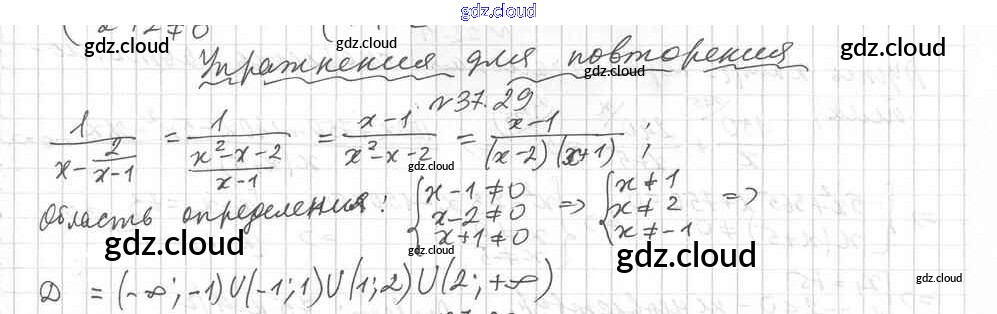 gdz.cloud
gdz.cloud gdz.cloud gdz.cloud
Упражнения для повторения
gdz.cloud
№37.29
1/(x - 2/(x-1)) = 1/((x²-x-2)/(x-1)) = (x-1)/(x²-x-2) = (x-1)/((x-2)(x+1)) ;
gdz.cloud
Область определения: { x-1≠0 x-2≠0 x+1≠0 => { x≠1 x≠2 x≠-1 =>
gdz.cloud gdz.cloud gdz.cloud
gdz.cloud gdz.cloud
D = (-∞;-1)U(-1;1)U(1;2)U(2;+∞)